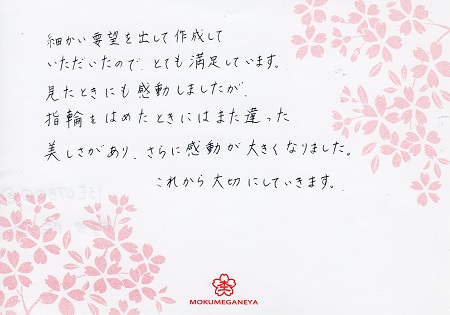 細かい要望を出して作成して
いただいたので、とても満足しています。
見たときにも感動しましたが、
指輪をはめたときにはまた違った
美しさがあり、さらに感動が大きくなりました。
これから大切にしていきます。
MOKUMEGANEYA